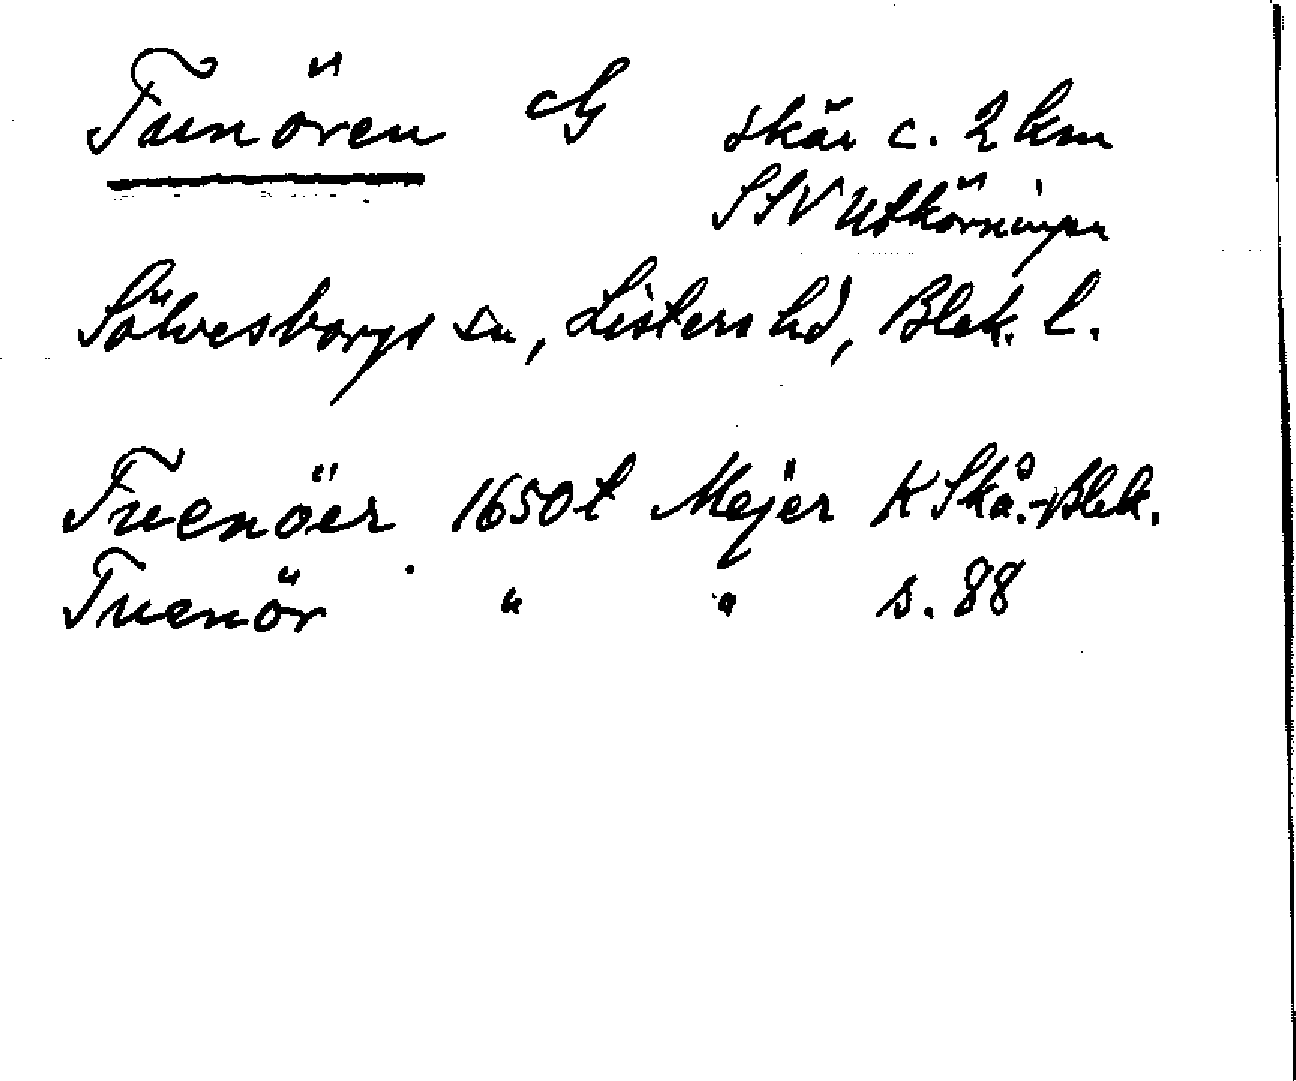 Tunören cG skär c. 2 km
SSV Utkörningen
Sölvesborgs sn, Listers hd, Blek. l.
Tuenöer 1650t Mejer KSkå.-Blek.
Tuenör " " s. 88